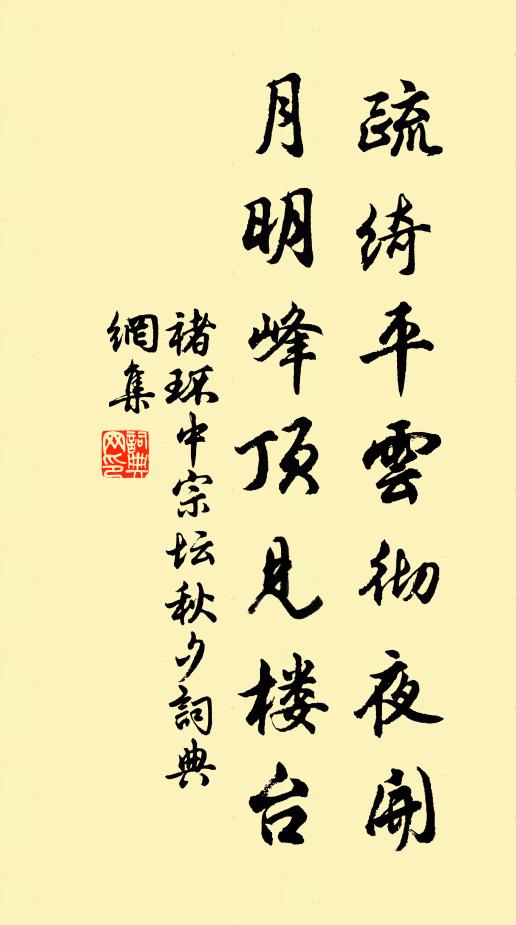 疏绮平雲彻夜開
月明峰顶見楼台
褚珵中宗坛秋夕詞典
網集
詞典網印